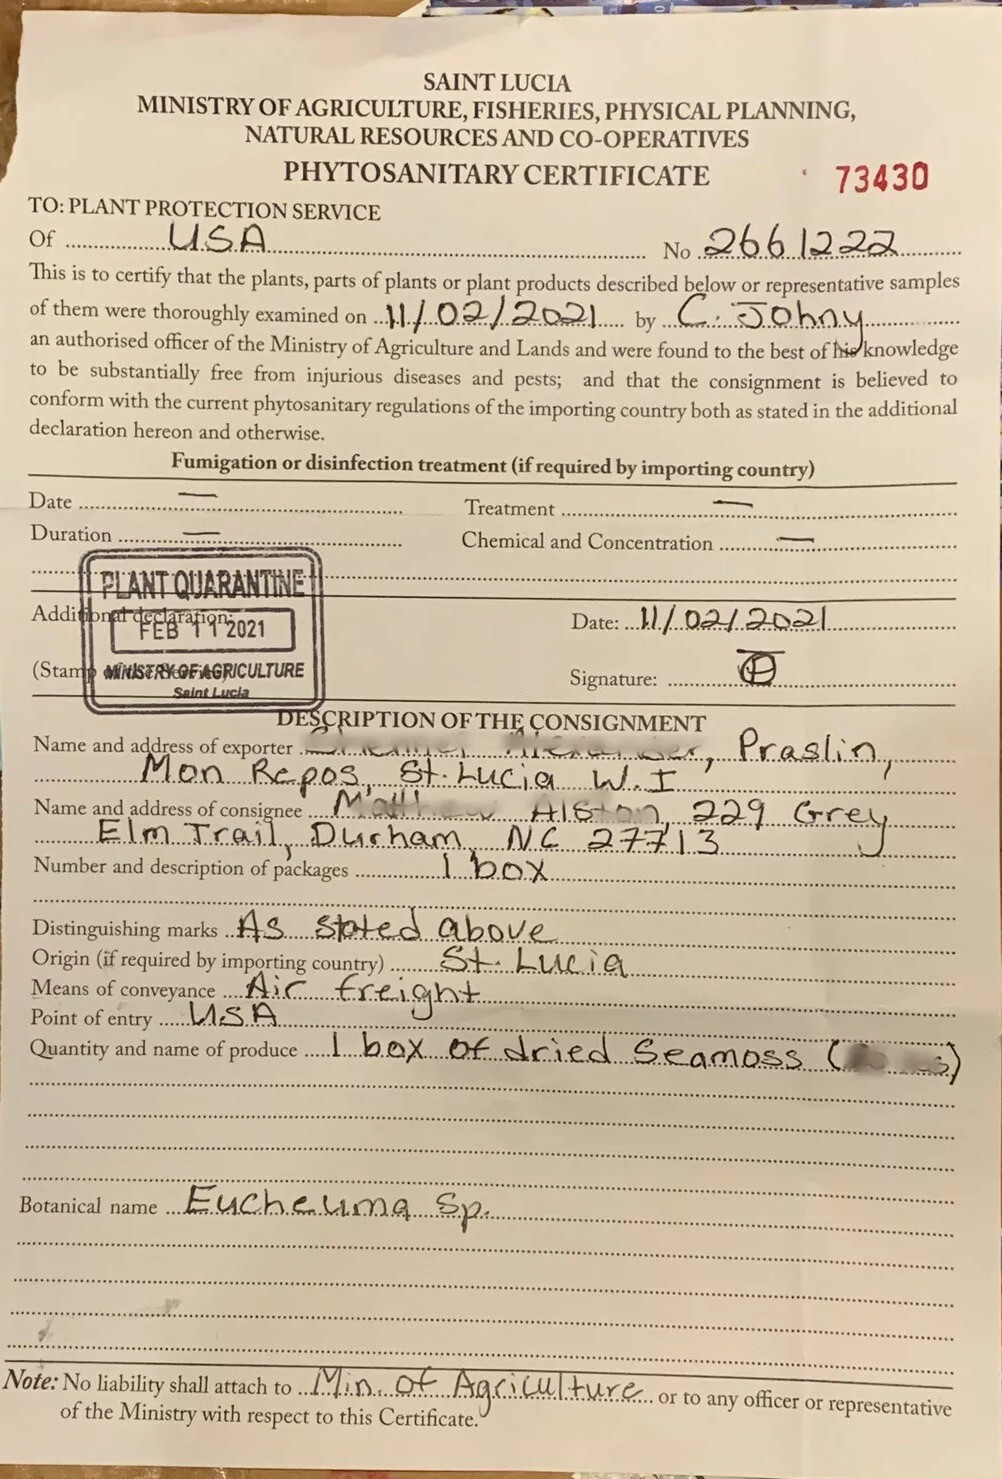 SAINT LUCIA
MINISTRY OF AGRICULTURE, FISHERIES, PHYSICAL PLANNING,
NATURAL RESOURCES AND CO-OPERATIVES
PHYTOSANITARY CERTIFICATE 73430
TO: PLANT PROTECTION SERVICE
Of USA No 2661222
This is to certify that the plants, parts of plants or plant products described below or representative samples
of them were thoroughly examined on 11/02/2021 by C. Johny
an authorised officer of the Ministry of Agriculture and Lands and were found to the best of his knowledge
to be substantially free from injurious diseases and pests; and that the consignment is believed to
conform with the current phytosanitary regulations of the importing country both as stated in the additional
declaration hereon and otherwise.
Fumigation or disinfection treatment (if required by importing country)
Date — Treatment —
Duration — Chemical and Concentration —
PLANT QUARANTINE
Additional declaration: Date: 11/02/2021
FEB 11 2021
(Stamp Signature:
MINISTRY OF AGRICULTURE
Saint Lucia
DESCRIPTION OF THE CONSIGNMENT
Name and address of exporter , Praslin,
Mon Repos, St. Lucia W.I
Name and address of consignee Alston, 229 Grey
Elm Trail, Durham, NC 27713
Number and description of packages 1 box
Distinguishing marks As stated above
Origin (if required by importing country) St. Lucia
Means of conveyance Air freight
Point of entry USA
Quantity and name of produce 1 box of dried Seamoss (
Botanical name Eucheuma sp.
Note: No liability shall attach to Min. of Agriculture or to any officer or representative
of the Ministry with respect to this Certificate.